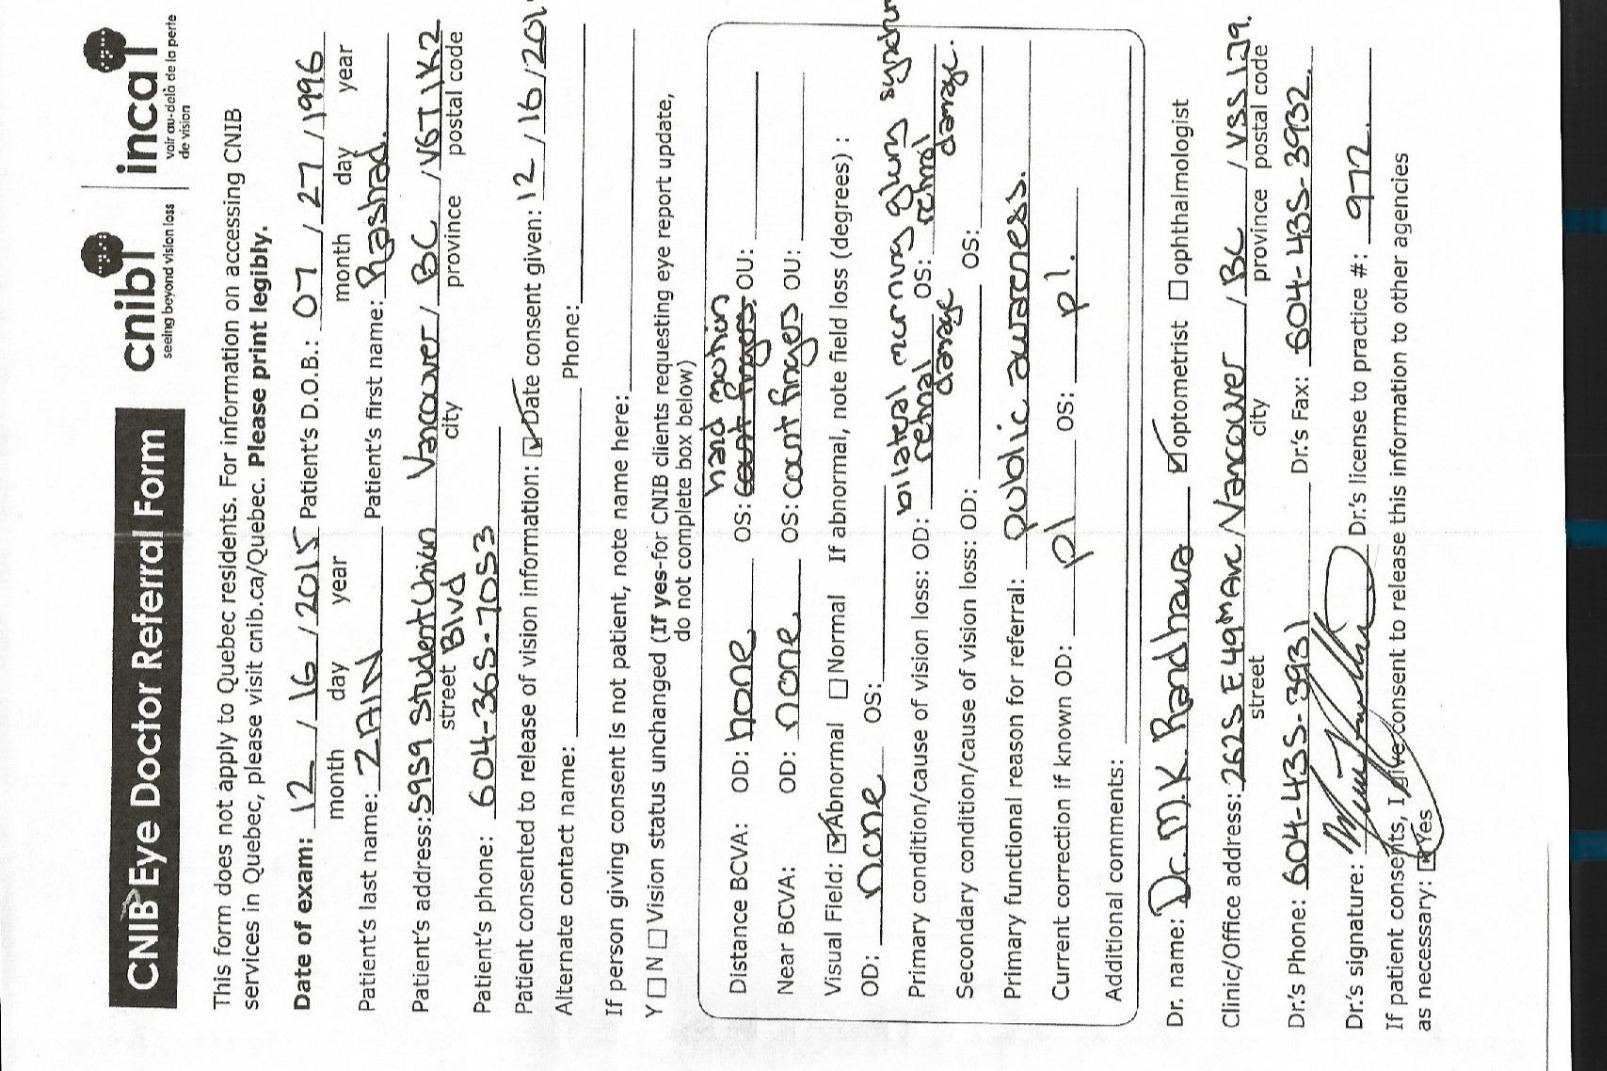 CNIB Eye Doctor Referral Form
cnib
seeing beyond vision loss
inca
voir au-delà de la perte
de vision
This form does not apply to Quebec residents. For information on accessing CNIB
services in Quebec, please visit cnib.ca/Quebec. Please print legibly.
Date of exam: 12 / 16 / 2015 Patient's D.O.B.: 07 / 27 / 1996
month day year month day year
Patient's last name: ZAIN Patient's first name: Rashad.
Patient's address: 5959 Student Union Blvd Vancouver / BC / V6T 1K2
street city province postal code
Patient's phone: 604-365-7053
Patient consented to release of vision information: ☑ Date consent given: 12 / 16 / 201
Alternate contact name: Phone:
If person giving consent is not patient, note name here:
Y ☐ N ☐ Vision status unchanged (If yes-for CNIB clients requesting eye report update,
do not complete box below)
Distance BCVA: OD: none OS: count fingers hand motion OU:
Near BCVA: OD: none OS: count fingers OU:
Visual Field: ☑ Abnormal ☐ Normal If abnormal, note field loss (degrees) :
OD: none OS:
Primary condition/cause of vision loss: OD: bilateral morning glory OS:
retinal damage retinal damage.
Secondary condition/cause of vision loss: OD: OS:
Primary functional reason for referral: public awareness.
Current correction if known OD: pl OS: pl.
Additional comments:
Dr. name: Dr. M.K. Randhawa ☑ optometrist ☐ ophthalmologist
Clinic/Office address: 2625 E 49th Ave / Vancouver / BC / V5S 1J9.
street city province postal code
Dr.'s Phone: 604-435-3931 Dr.'s Fax: 604-435-3932.
Dr.'s signature: Dr.'s license to practice #: 972.
If patient consents, I give consent to release this information to other agencies
as necessary: ☑ Yes